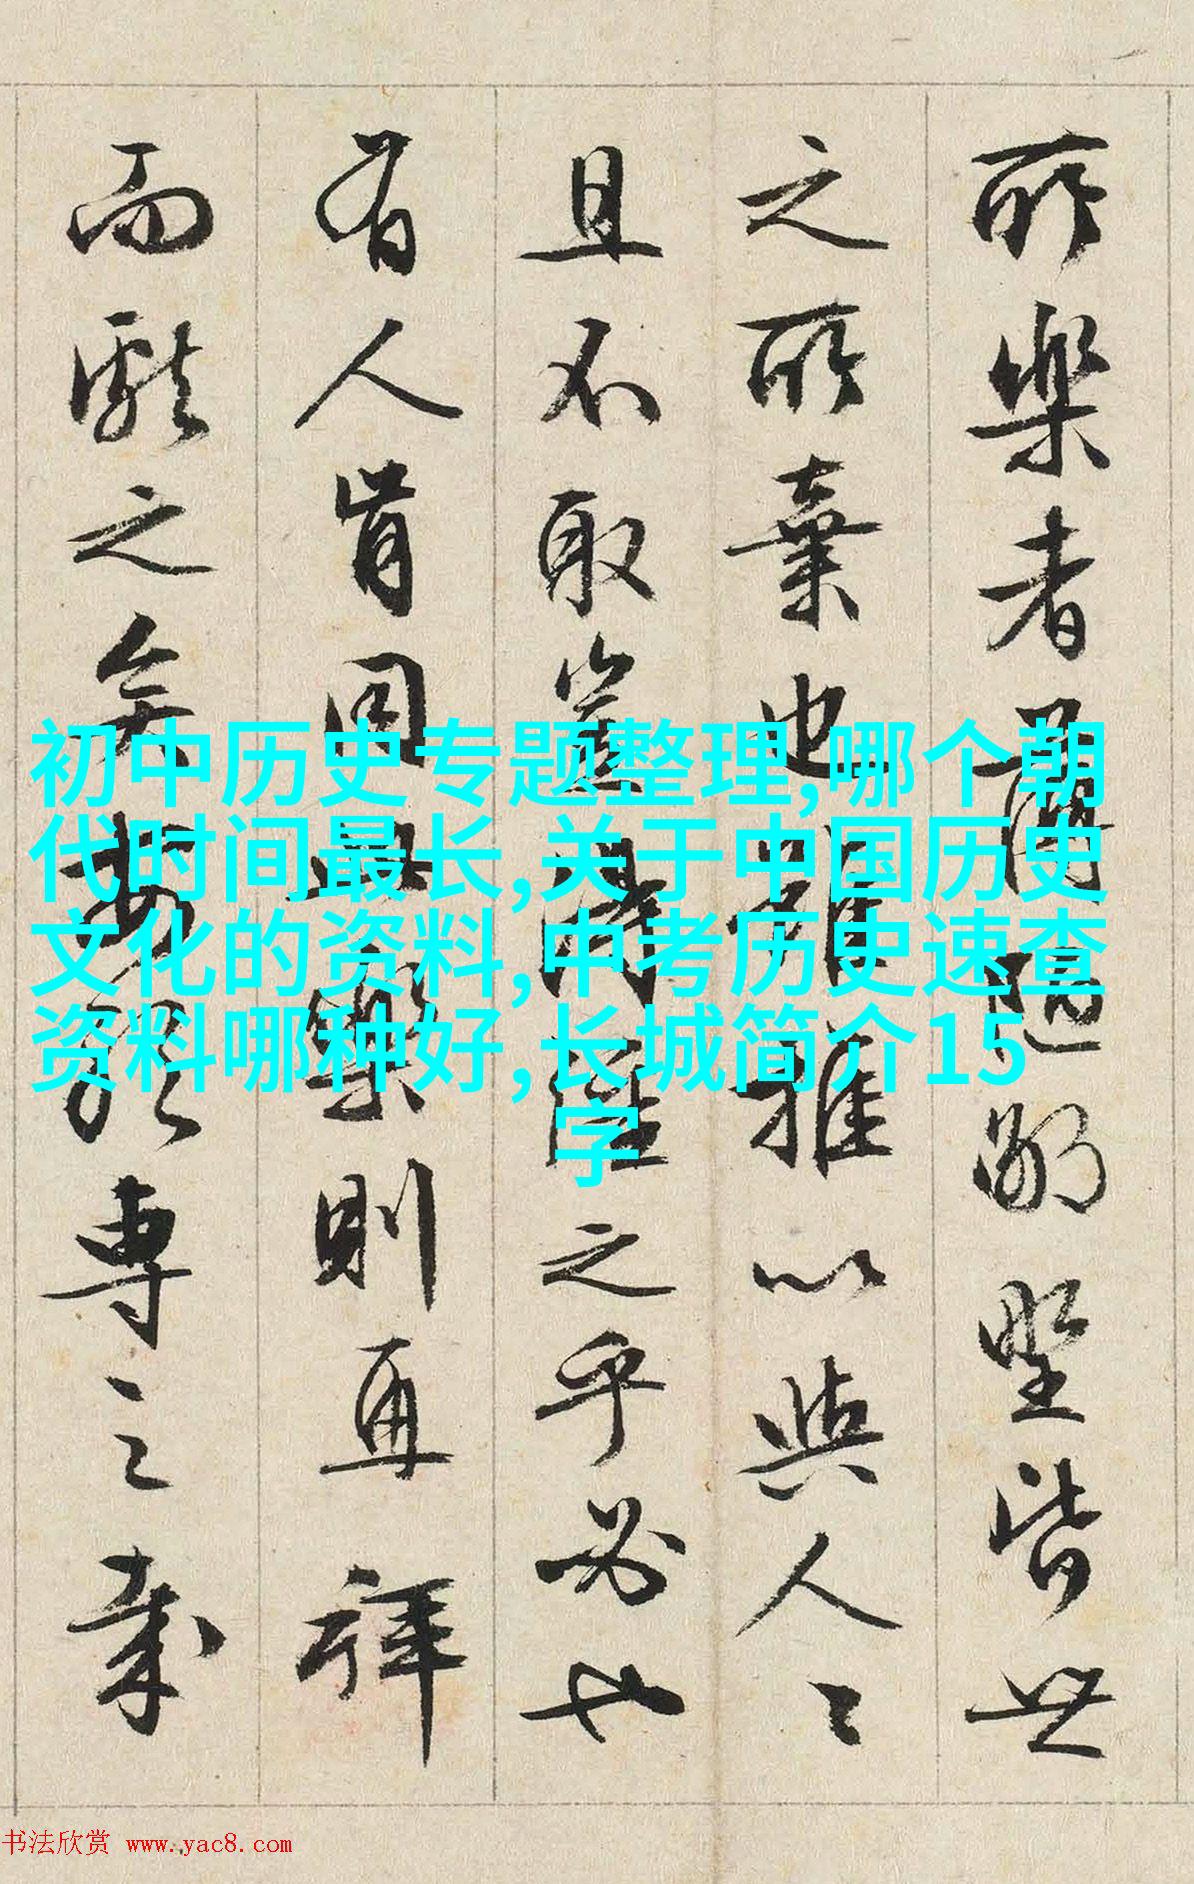 所樂者薄陋鄙野皆世
之所棄也雖推以與人〻
且不取豈得強之乎必也
有人肯同此樂則再拜
而獻之矣專之哉
初中历史专题整理,哪个朝
代时间最长,关于中国历史
文化的资料,中考历史速查
资料哪种好,长城简介15
字
书法欣赏 www.yac8.com